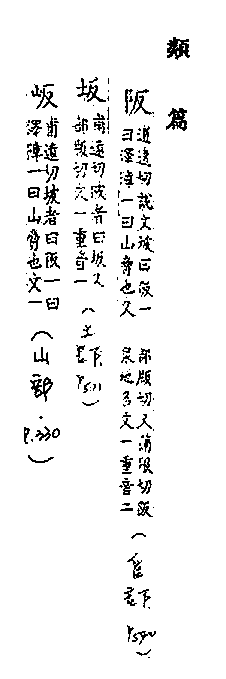 類篇
阪
逋遠切說文坡曰阪一
曰澤障一曰山脅也又
部版切又蒲限切阪
泉地名文一重音二
(𨸏部下 P540)
坂
甫遠切坡者曰坂又
部版切文一重音一
(土部下 P511)
岅
甫遠切坡者曰阪一曰
澤障一曰山脅也文一
(山部．P.330)